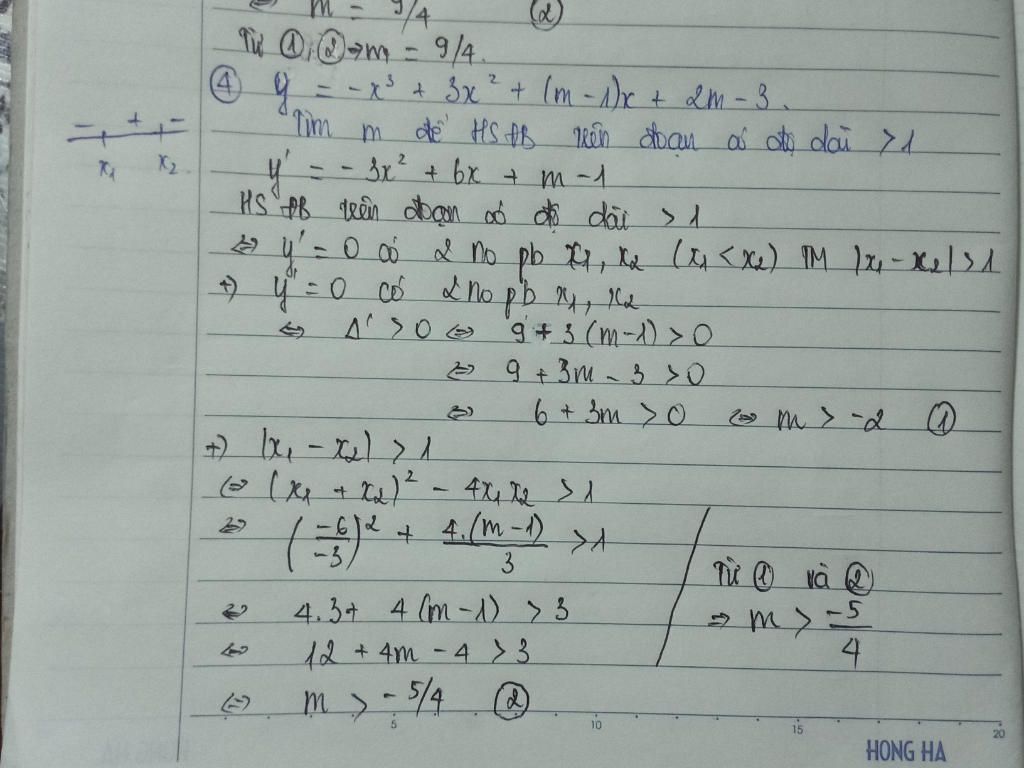 ⇔ m = 9/4 ②
Từ ①, ② ⇒ m = 9/4.
④ y = -x³ + 3x² + (m-1)x + 2m - 3.
Tìm m để HSĐB trên đoạn có độ dài > 1
- + -
x₁ x₂
y' = -3x² + 6x + m - 1
HS ĐB trên đoạn có độ dài > 1
⇔ y' = 0 có 2 no pb x₁, x₂ (x₁ < x₂) TM |x₁ - x₂| > 1
+) y' = 0 có 2 no pb x₁, x₂
⇔ Δ' > 0 ⇔ 9 + 3(m-1) > 0
⇔ 9 + 3m - 3 > 0
⇔ 6 + 3m > 0 ⇔ m > -2 ①
+) |x₁ - x₂| > 1
⇔ (x₁ + x₂)² - 4x₁x₂ > 1
⇔ (-6/-3)² + 4.(m-1)/3 > 1
⇔ 4.3 + 4(m-1) > 3
⇔ 12 + 4m - 4 > 3
⇔ m > -5/4 ②
Từ ① và ②
⇒ m > -5/4
5 10 15 20
HONG HA